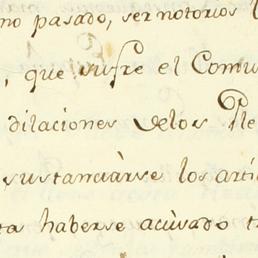 no pasado, ser notorios l
, que sufre el Comu
dilaciones delos Ple
sustanciarse los artí
ta haberse acúvado t